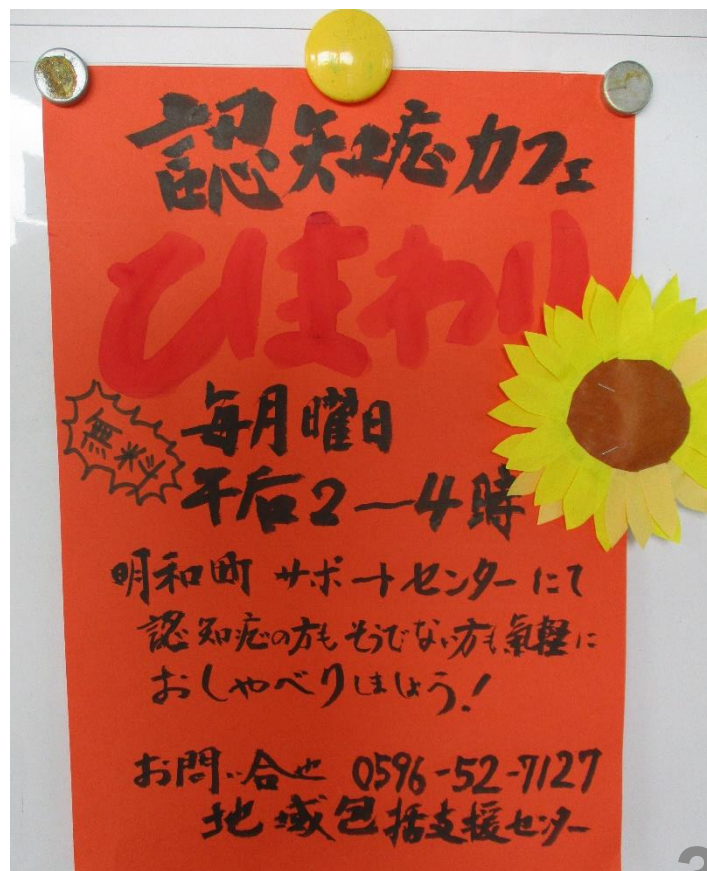 認知症カフェ
ひまわり
無料
毎月曜日
午后2―4時
明和町 サポートセンターにて
認知症の方もそうでない方も気軽に
おしゃべりしましょう!
お問い合せ 0596-52-7127
地域包括支援センター